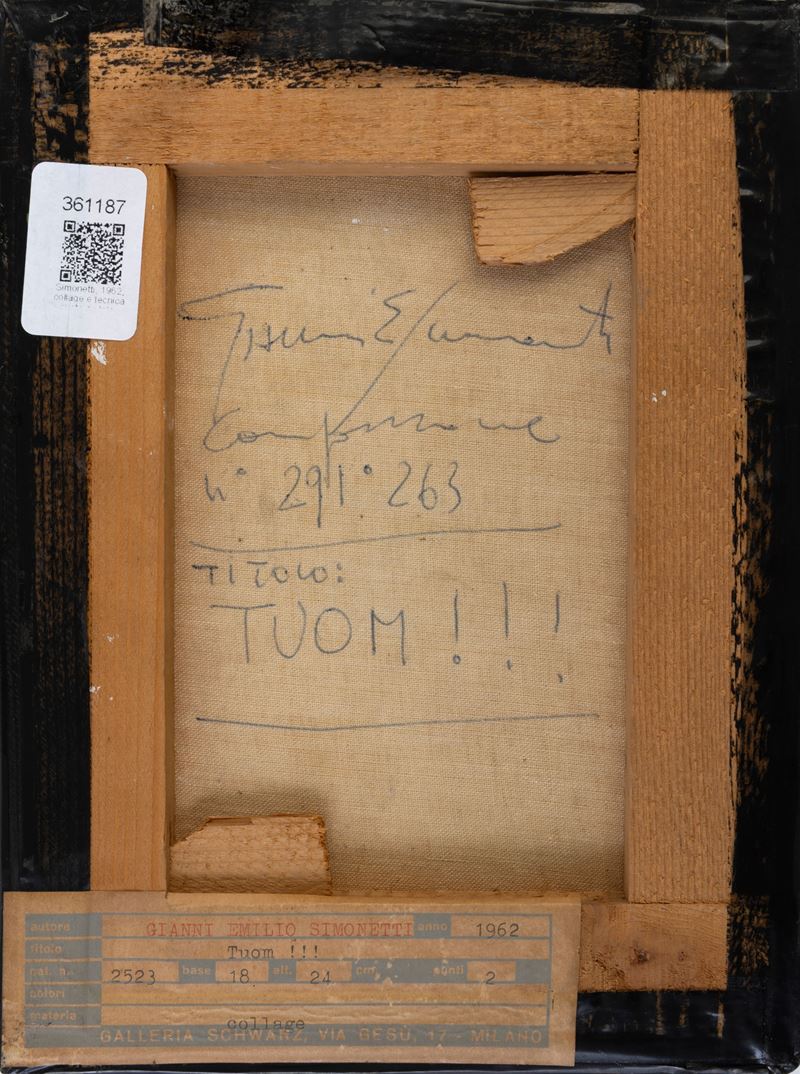 361187
Simonetti, 1962,
collage e tecnica
Gianni E Simonetti
Composizione
n° 291° 263
TITOLO:
TUOM !!!
autore GIANNI EMILIO SIMONETTI anno 1962
titolo Tuom !!!
cat. n. 2523 base 18 alt. 24 cm punti 2
colori
materia collage
GALLERIA SCHWARZ, VIA GESÙ, 17 - MILANO